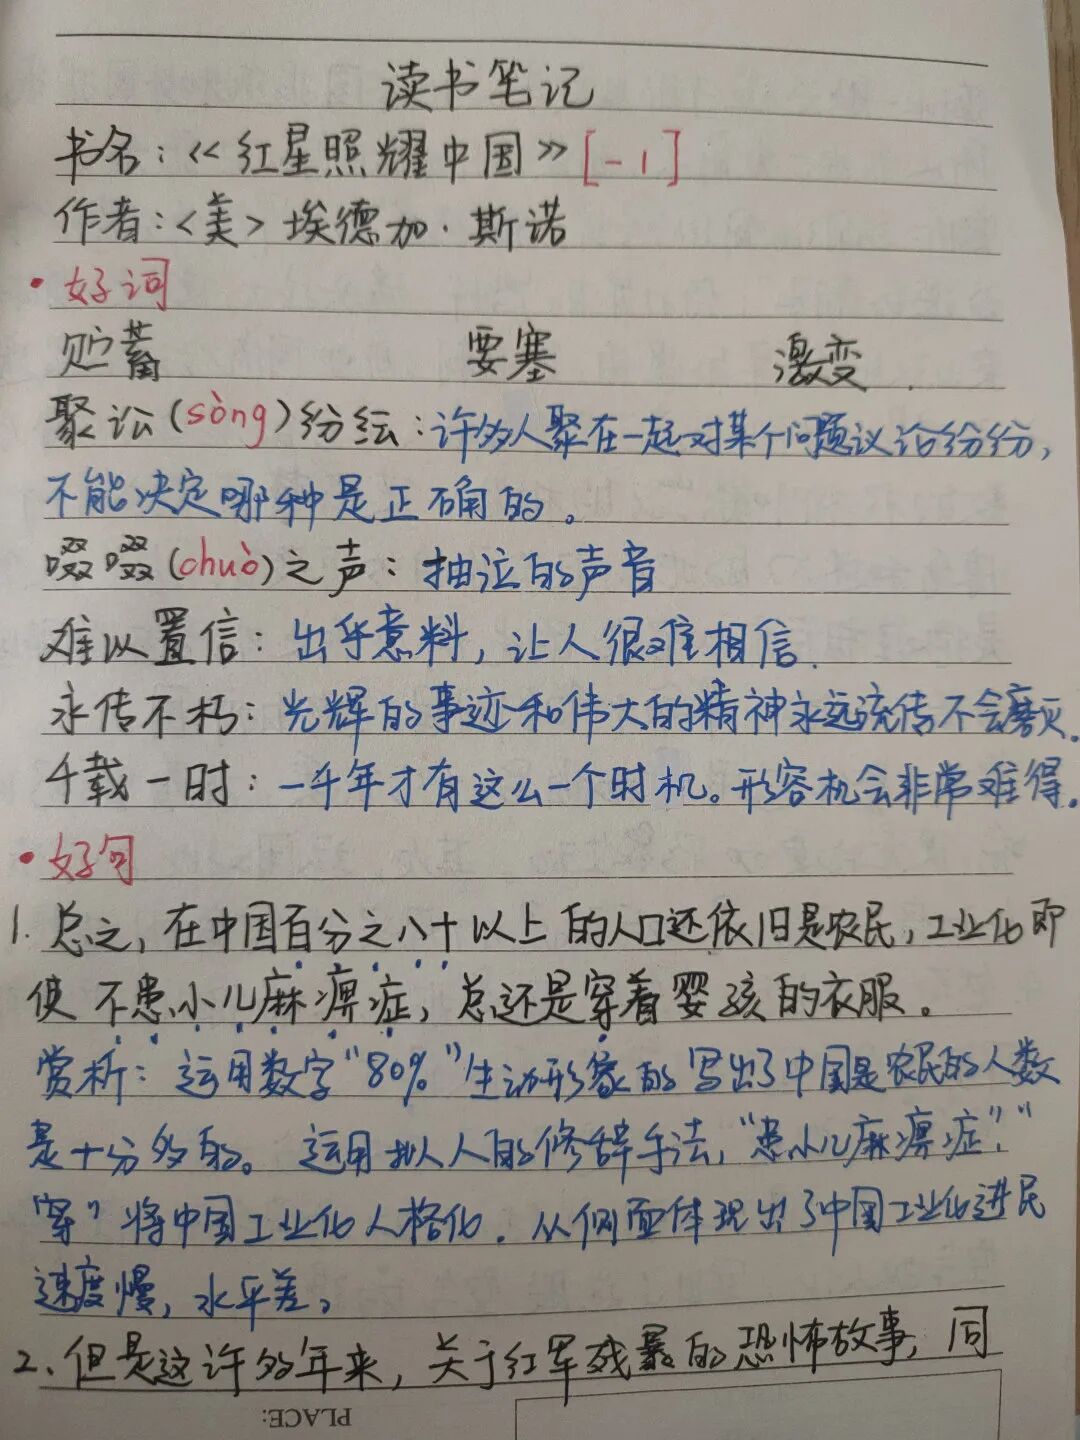 读书笔记
书名：《红星照耀中国》[-1]
作者：<美>埃德加·斯诺
·好词
贮蓄 要塞 激变
聚讼(sòng)纷纭：许多人聚在一起对某个问题议论纷纷，
不能决定哪种是正确的。
啜啜(chuò)之声：抽泣的声音
难以置信：出乎意料，让人很难相信.
永传不朽：光辉的事迹和伟大的精神永远流传不会磨灭.
千载一时：一千年才有这么一个时机。形容机会非常难得.
·好句
1. 总之，在中国百分之八十以上的人口还依旧是农民，工业化即
使不患小儿麻痹症，总还是穿着婴孩的衣服。
赏析：运用数字“80%”生动形象的写出了中国是农民的人数
是十分多的。运用拟人的修辞手法，“患小儿麻痹症”，“
“穿”将中国工业化人格化．从侧面体现出了中国工业化进民
速度慢，水平差。
2. 但是这许多年来，关于红军残暴的恐怖故事，同
PLACE: